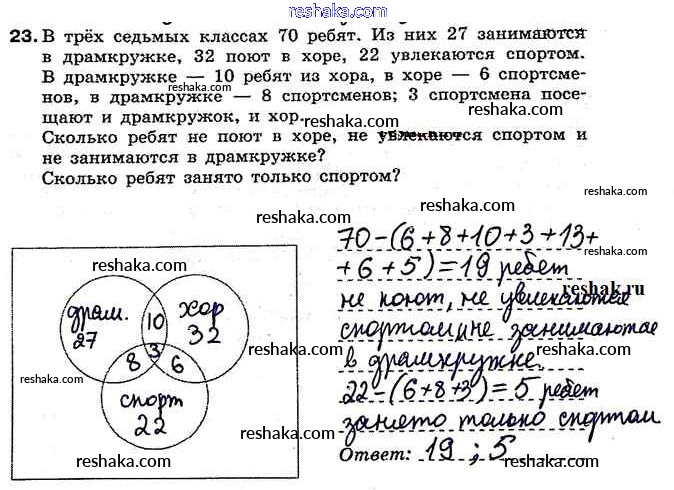 www.reshaka.com
23. В трёх седьмых классах 70 ребят. Из них 27 занимаются
в драмкружке, 32 поют в хоре, 22 увлекаются спортом.
В драмкружке — 10 ребят из хора, в хоре — 6 спортсме-
нов, в драмкружке — 8 спортсменов; 3 спортсмена посе-
щают и драмкружок, и хор.
Сколько ребят не поют в хоре, не увлекаются спортом и
не занимаются в драмкружке?
Сколько ребят занято только спортом?
www.reshaka.com
www.reshaka.com
www.reshaka.com
www.reshaka.com
reshaka.com
reshaka.com
reshaka.com
70-(6+8+10+3+13+
+6+5)=19 ребят
reshaka.com
reshaka.ru
не поют, не увлекаются
спортом и не занимаются
в драмкружке.
22-(6+8+3)=5 ребят
занято только спортом
Ответ: 19; 5
reshaka.com
reshaka.com
reshaka.com
reshaka.com
reshaka.com
reshaka.com
драм.
27
10
хор
32
3
8
6
reshaka.com
reshaka.com
спорт
22
reshaka.com